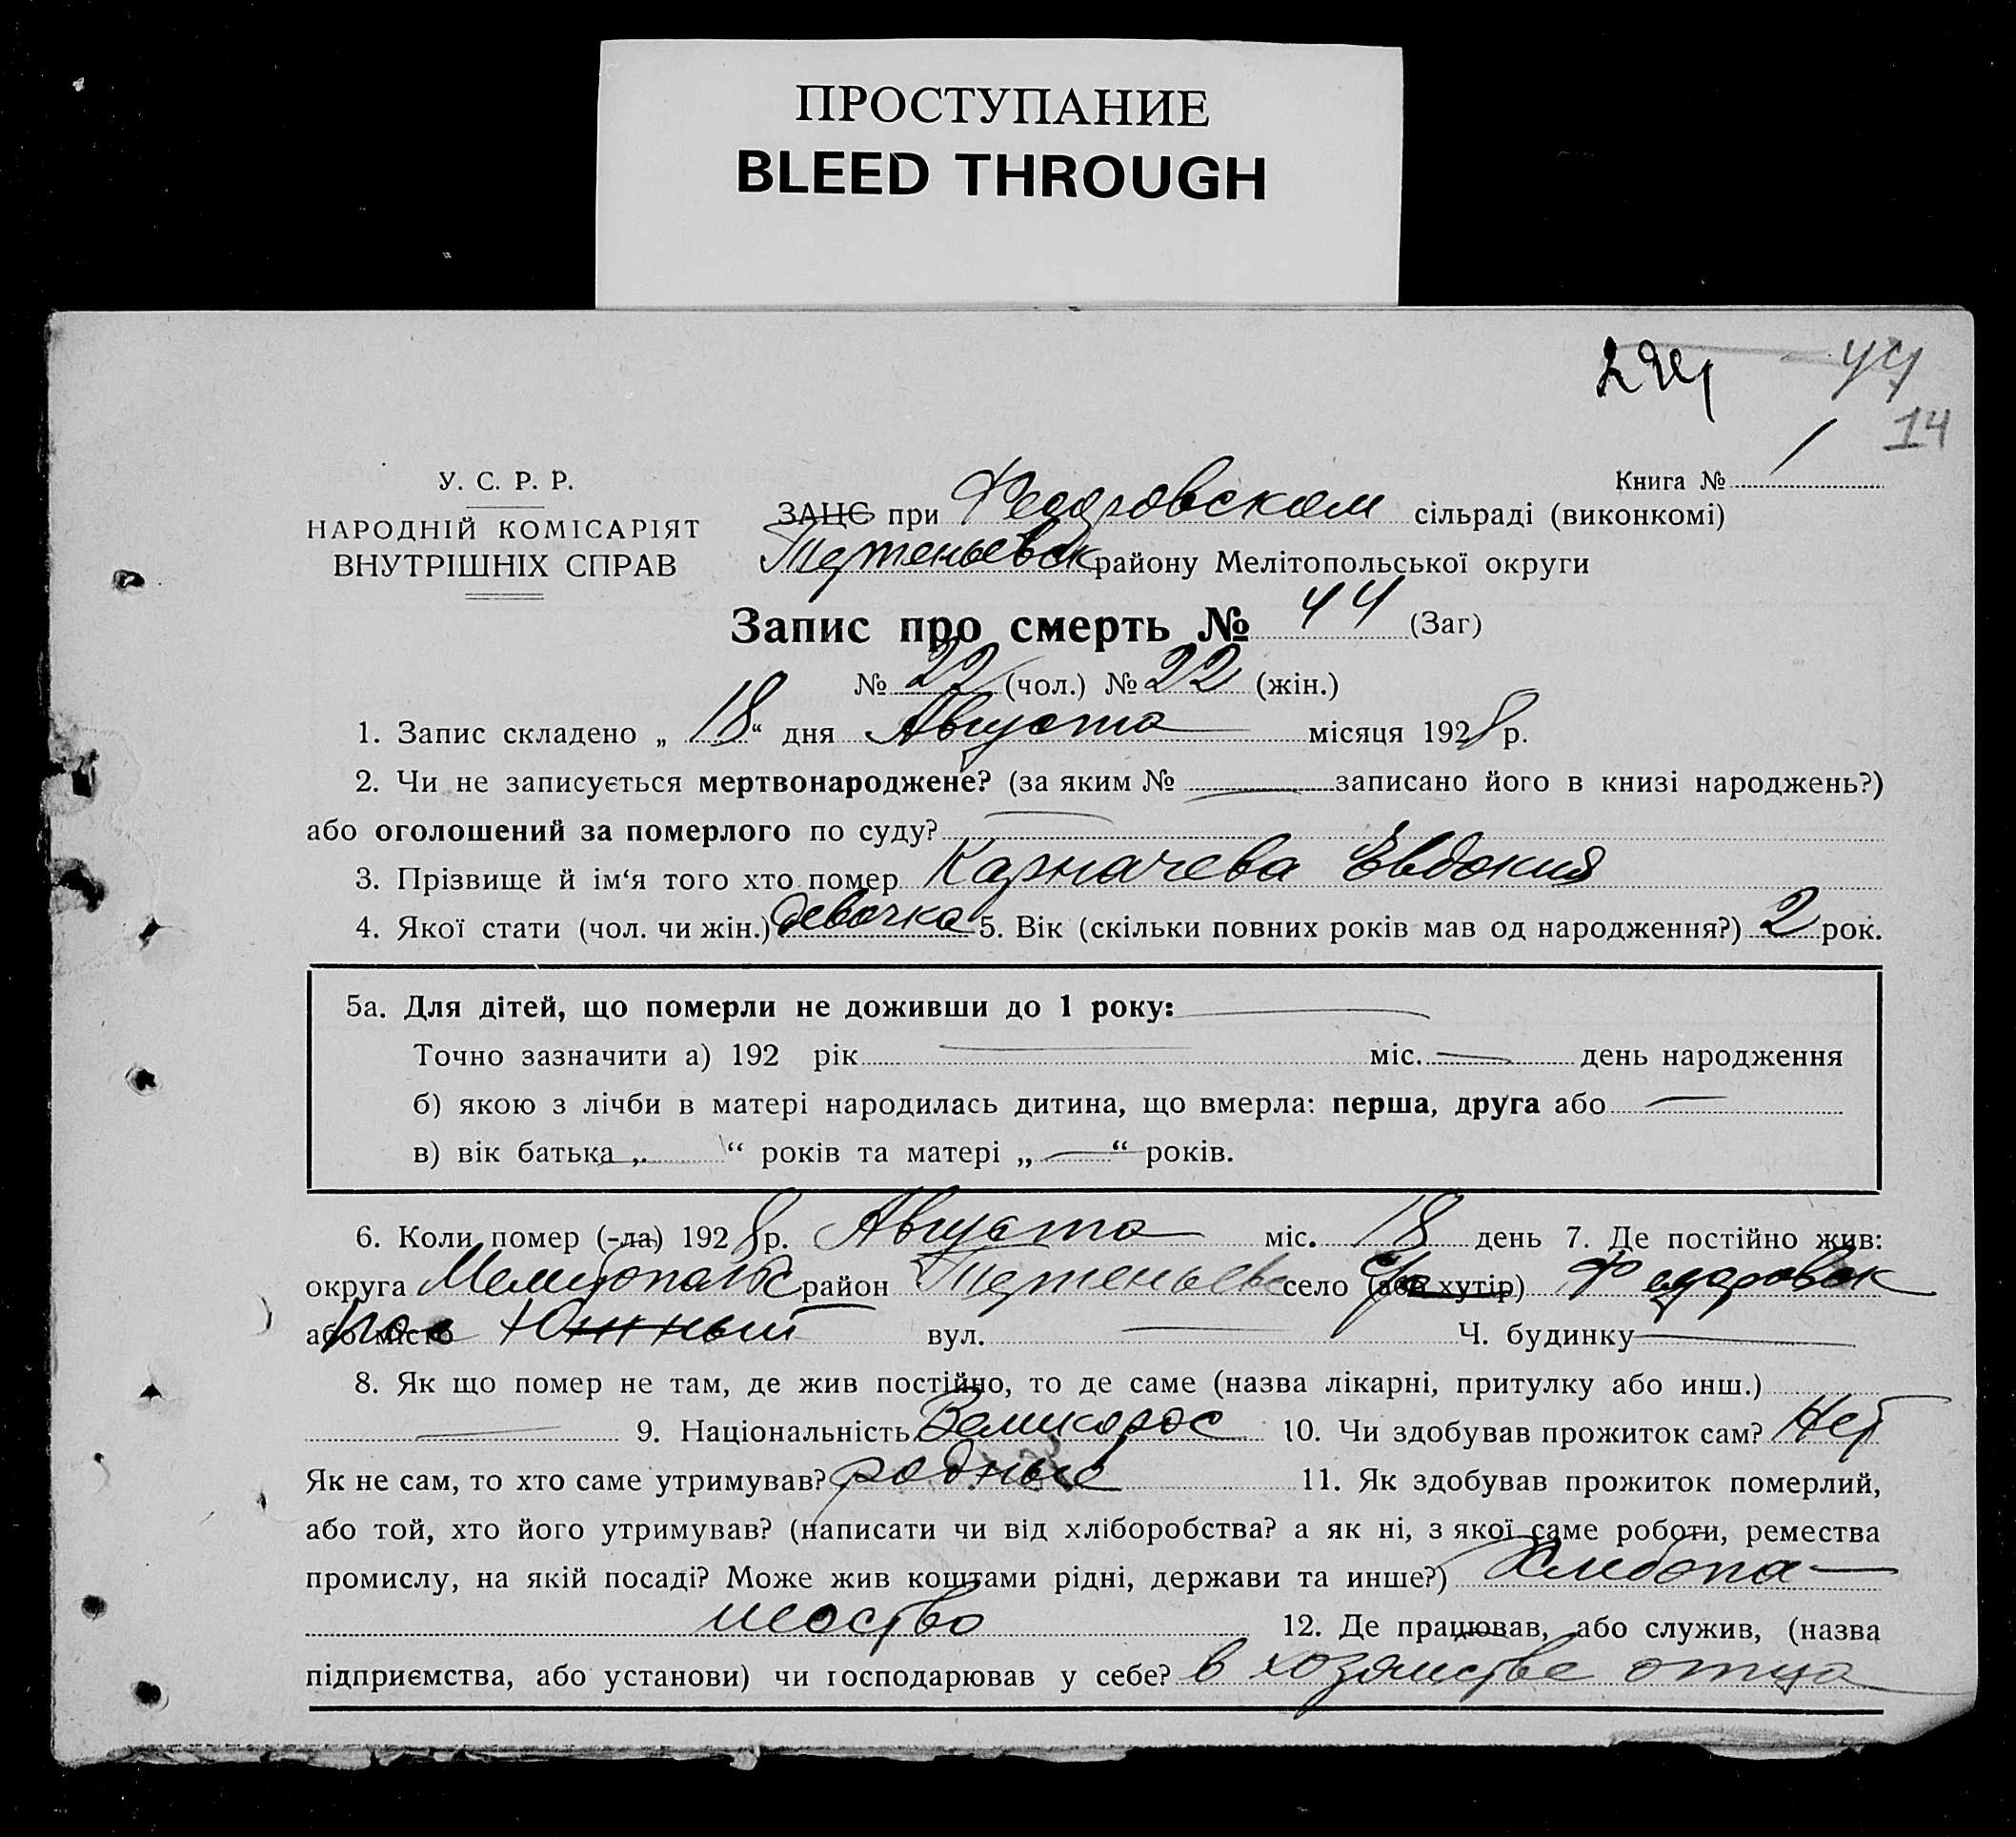 ПРОСТУПАНИЕ
BLEED THROUGH
44
14
Книга № 1
У. С. Р. Р.
НАРОДНІЙ КОМІСАРІЯТ
ВНУТРІШНІХ СПРАВ
ЗАЦС при Федоровском сільраді (виконкомі)
району Мелітопольської округи
Запис про смерть № 44 (Заг)
№ 22 (чол.) № 22 (жін.)
1. Запис складено „ 18 “ дня Августа місяця 1928 р.
2. Чи не записується мертвонароджене? (за яким № записано його в книзі народжень?)
або оголошений за померлого по суду?
3. Прізвище й ім‘я того хто помер Карначева Евдокия
4. Якої стати (чол. чи жін.) девочка 5. Вік (скільки повних років мав од народження?) 2 рок.
5а. Для дітей, що померли не доживши до 1 року:
Точно зазначити а) 192 рік міс. день народження
б) якою з лічби в матері народилась дитина, що вмерла: перша, друга або
в) вік батька „ “ років та матері „ “ років.
6. Коли помер (-ла) 1928 р. Августа міс. 18 день 7. Де постійно жив:
округа Мелитопольс район село (або хутір) Федоровок
або місто Южный вул. Ч. будинку
8. Як що помер не там, де жив постійно, то де саме (назва лікарні, притулку або инш.)
9. Національність Великорос 10. Чи здобував прожиток сам? Нет
Як не сам, то хто саме утримував? родные 11. Як здобував прожиток померлий,
або той, хто його утримував? (написати чи від хліборобства? а як ні, з якої саме роботи, ремества
промислу, на якій посаді? Може жив коштами рідні, держави та инше?) Хлибопа-
шество 12. Де працював, або служив, (назва
підприємства, або установи) чи господарював у себе? в хозяистве отца